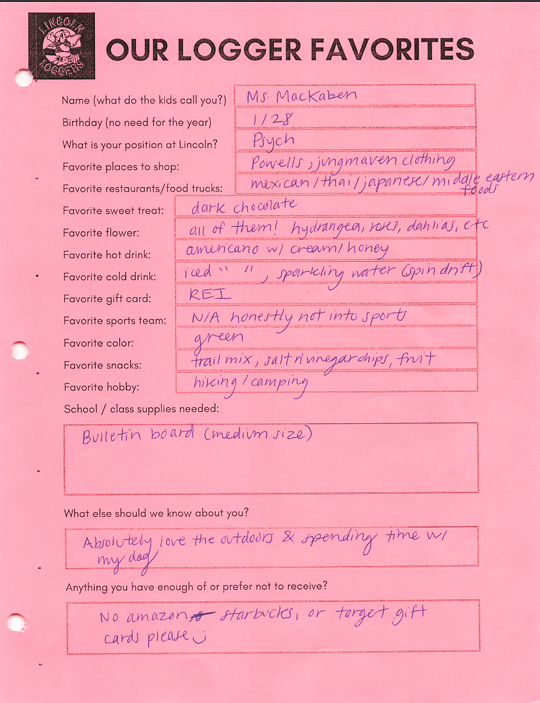 LINCOLN
LOGGERS
OUR LOGGER FAVORITES
Name (what do the kids call you?) Ms. MacKaben
Birthday (no need for the year) 1/28
What is your position at Lincoln? Psych
Favorite places to shop: Powells, jungmaven clothing
Favorite restaurants/food trucks: mexican/thai/japanese/middle eastern
foods
Favorite sweet treat: dark chocolate
Favorite flower: all of them! hydrangea, roses, dahlias, etc
Favorite hot drink: americano w/ cream/honey
Favorite cold drink: iced " " , sparkling water (spindrift)
Favorite gift card: REI
Favorite sports team: N/A honestly not into sports
Favorite color: green
Favorite snacks: trail mix, salt n vinegar chips, fruit
Favorite hobby: hiking/camping
School / class supplies needed:
Bulletin board (medium size)
What else should we know about you?
Absolutely love the outdoors & spending time w/
my dog
Anything you have enough of or prefer not to receive?
No amazon starbucks, or target gift
cards please